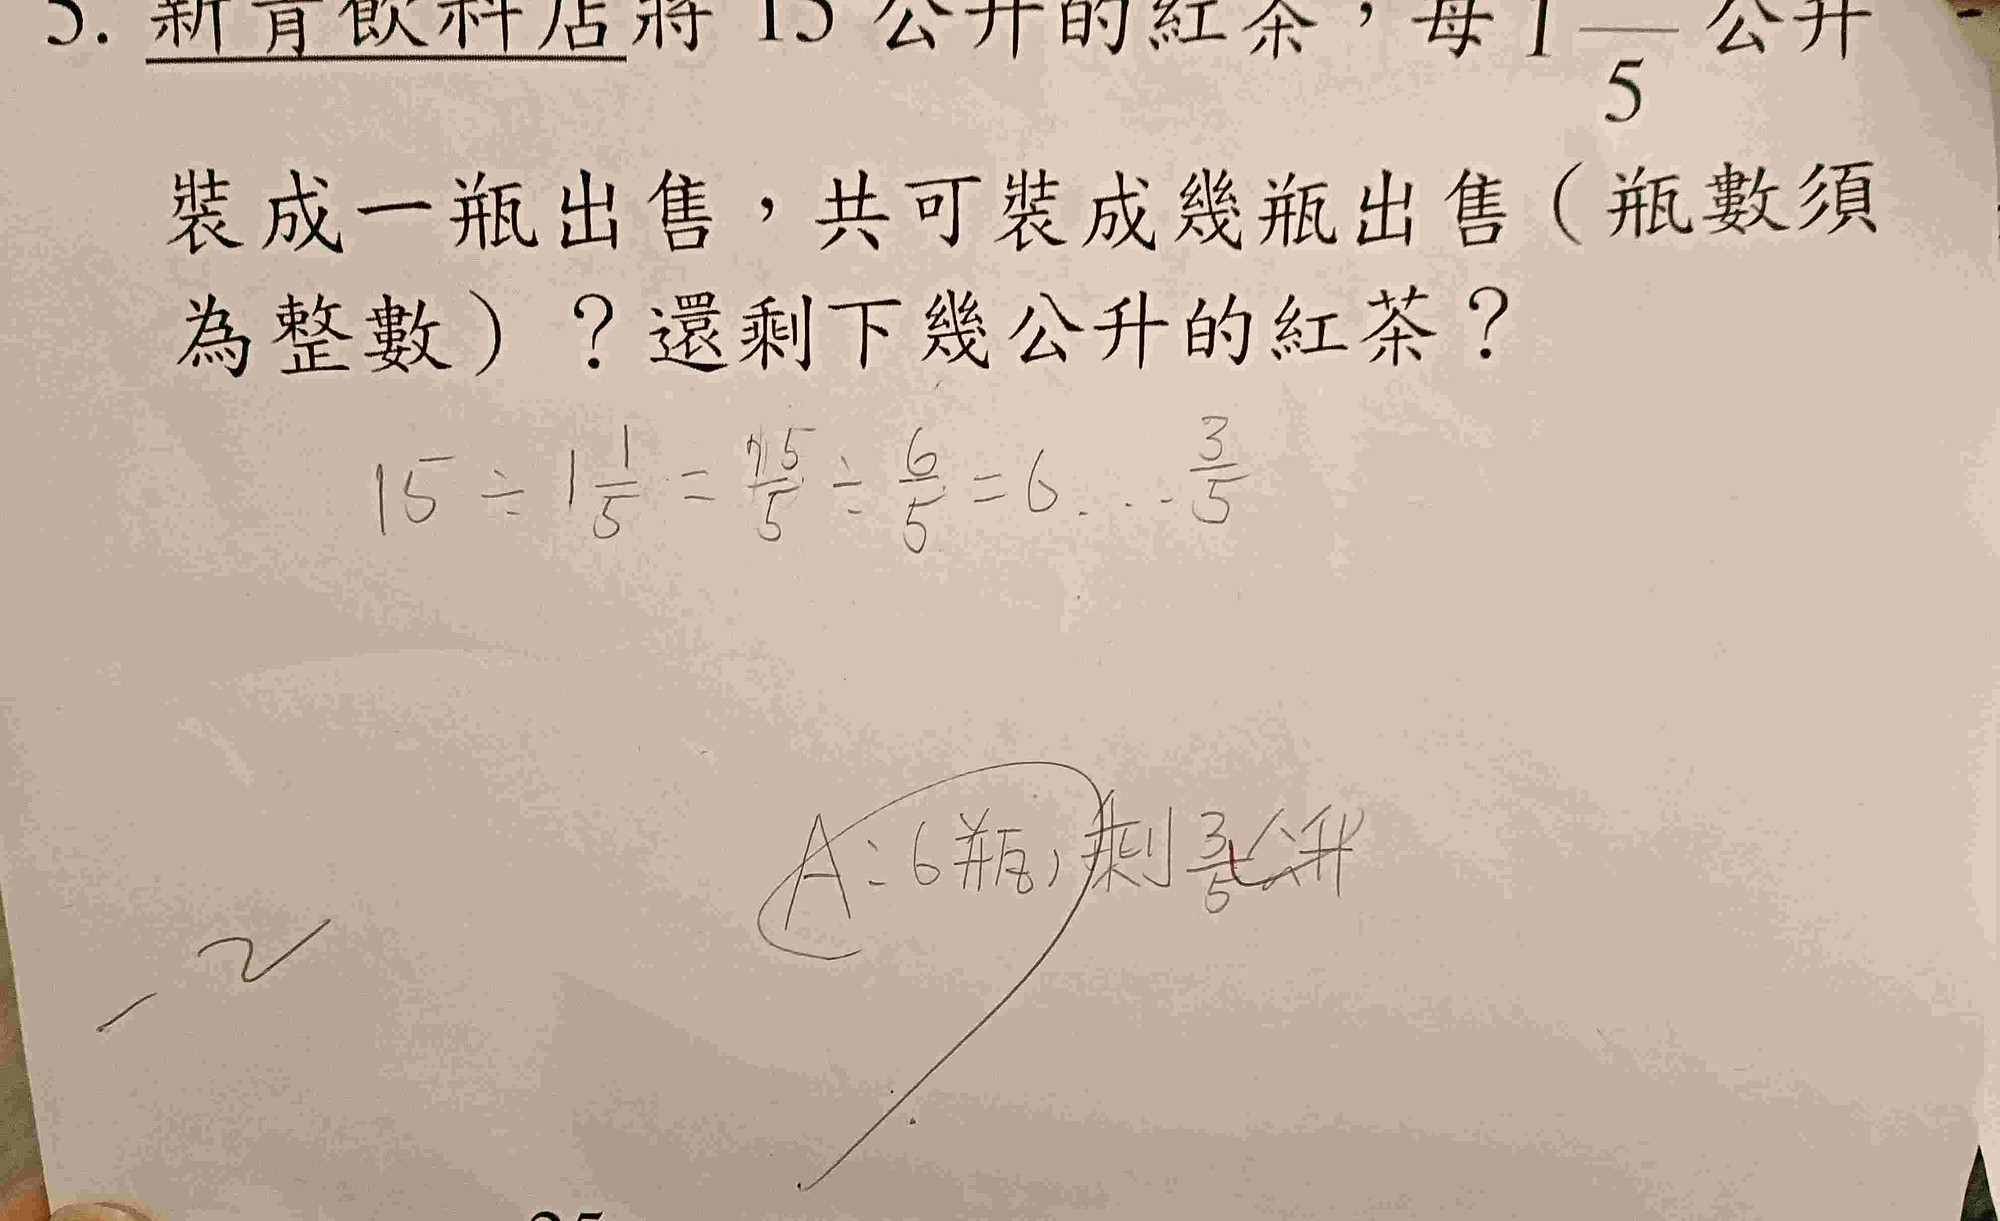 5. 新育飲料店將 15 公升的紅茶，每 1 —/5 公升
裝成一瓶出售，共可裝成幾瓶出售（瓶數須
為整數）？還剩下幾公升的紅茶？
15 ÷ 1 1/5 = 75/5 ÷ 6/5 = 6...3/5
A：6瓶，剩 3/5 公升
-2